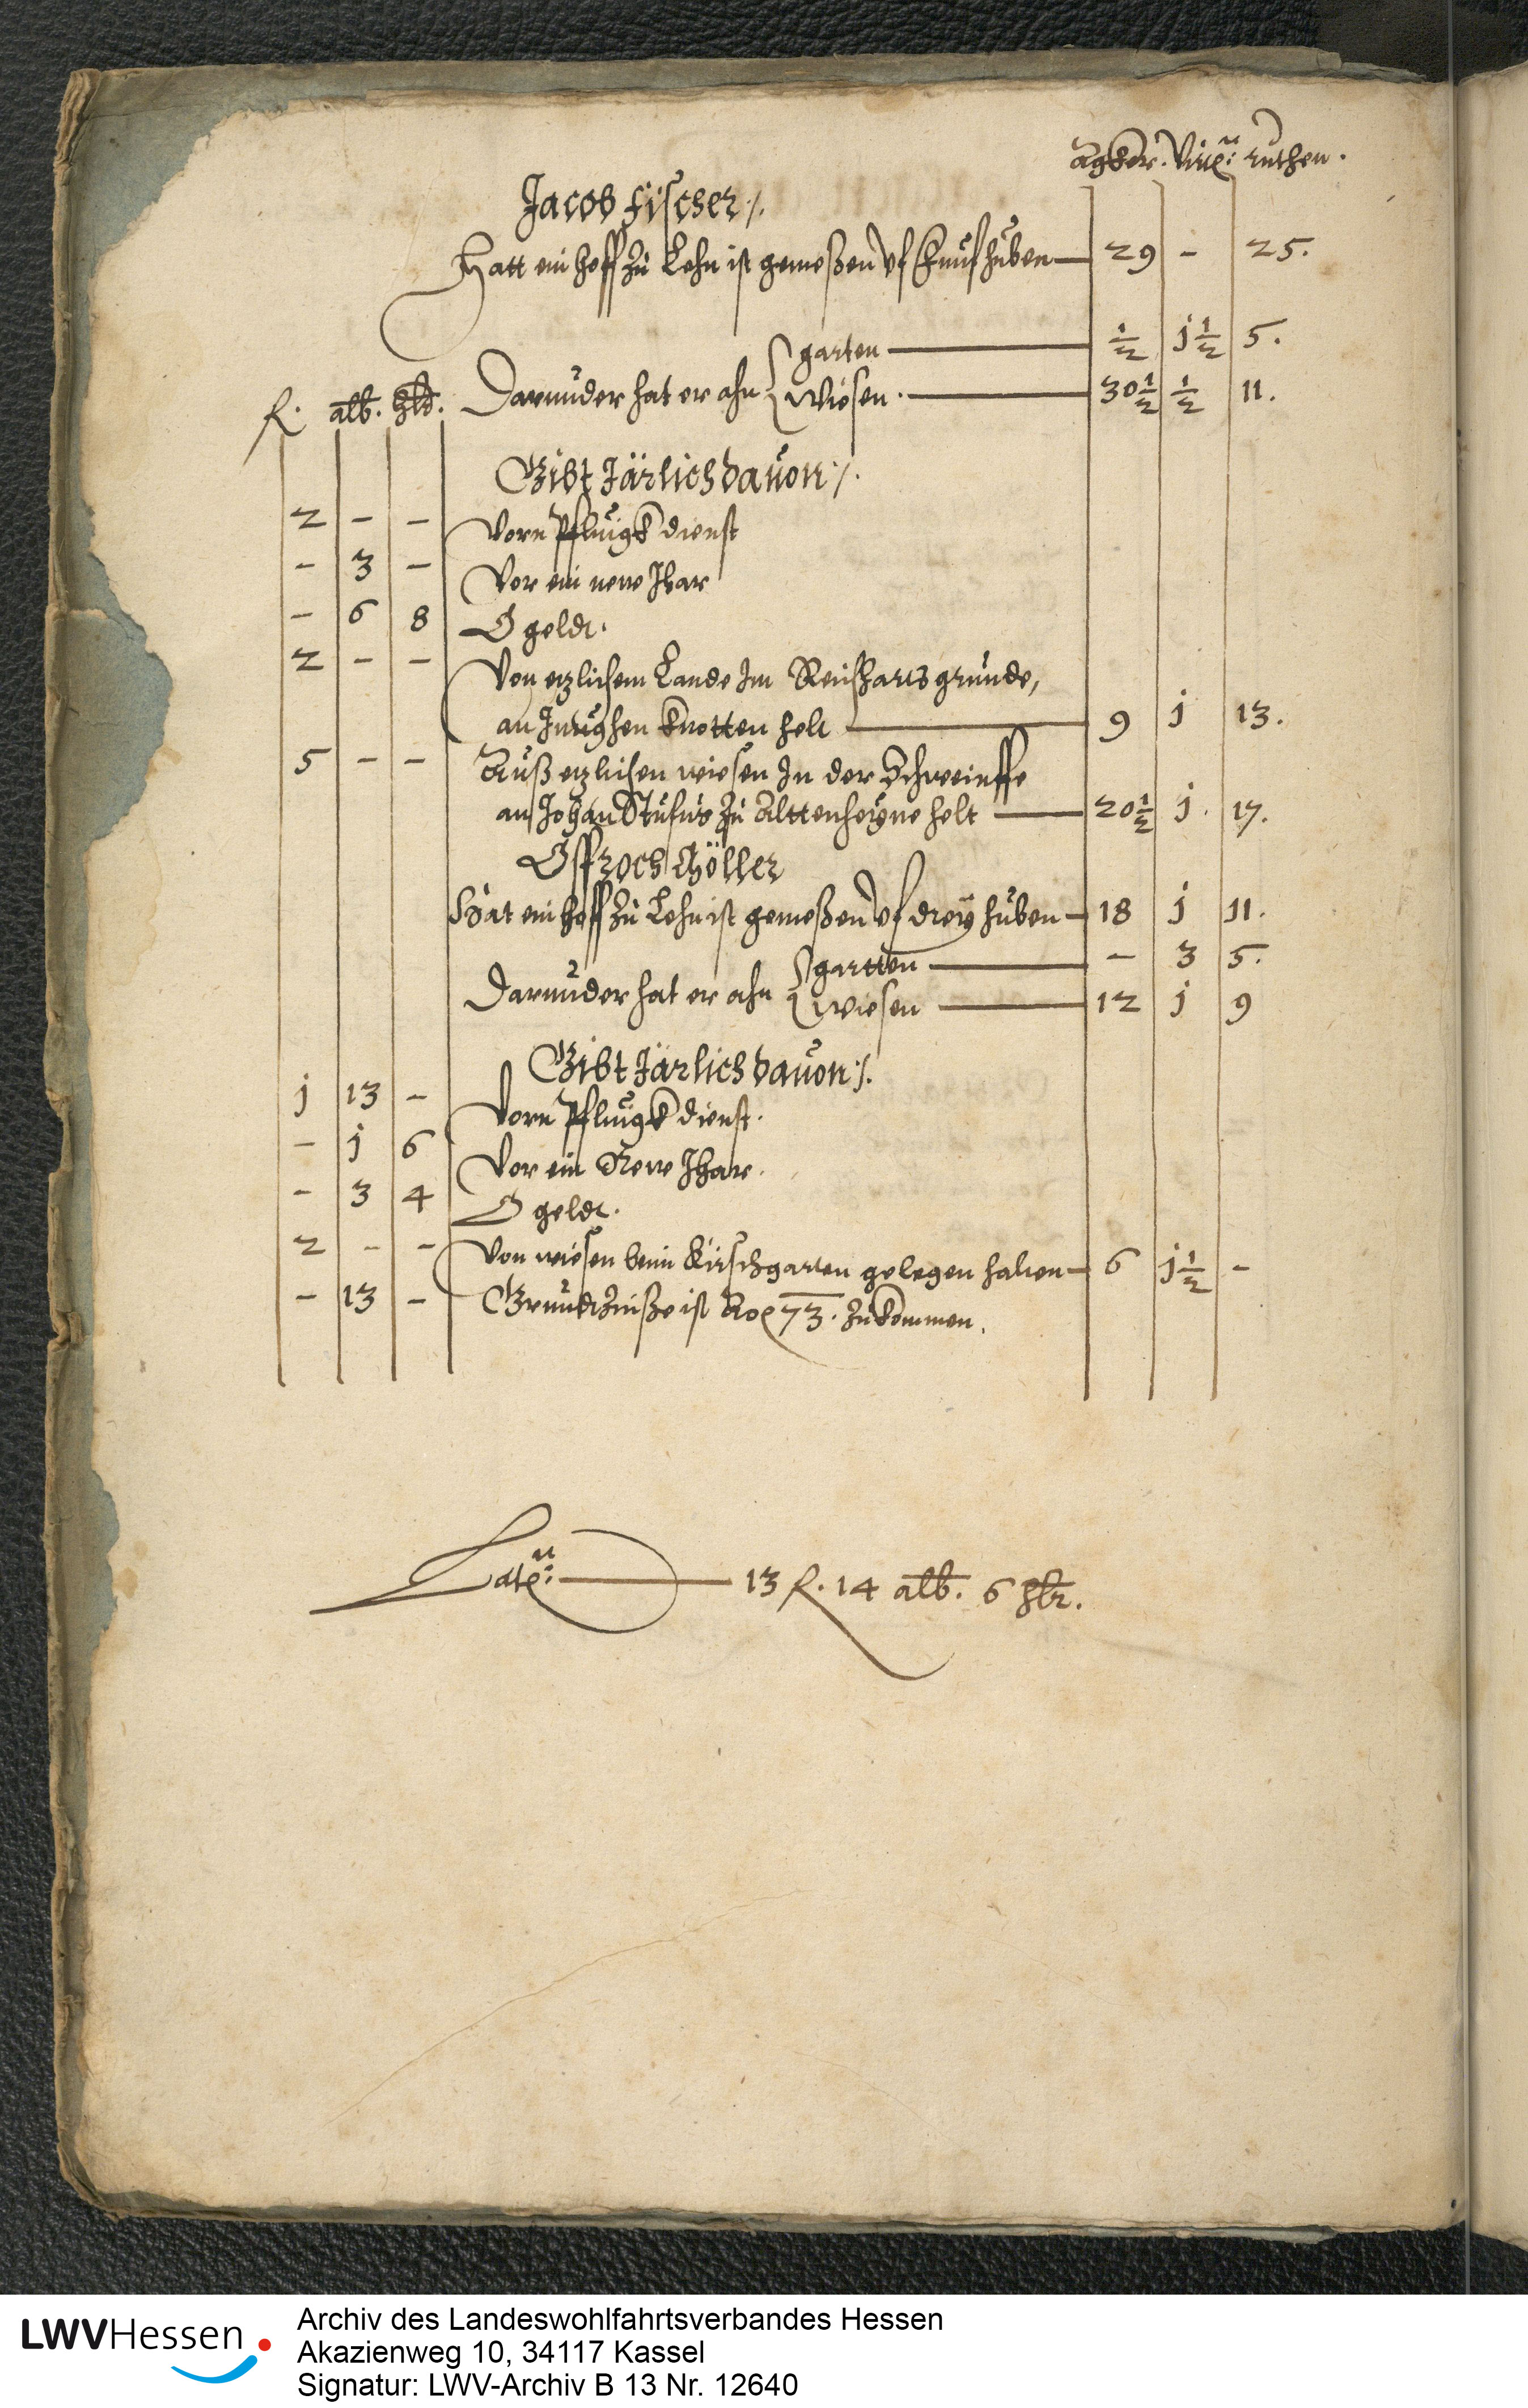 Agker. Virt: ruthen.
Jacob Fischer ./.
Hatt ein hoff zu Lehn ist gemeßen vf funf huben 29 - 25.
garten ½ j½ 5.
fl. alb. hlr. Darunder hat er ahn Wiesen. 30½ ½ 11.
Gibt Järlich davon ./.
2 - - Vorn Pflugk dienst
- 3 - Vor ein new Jhar
- 6 8 geldt.
2 - - Von etzlichem Lande Im Reinharts grunde,
an knotten helt 9 j 13.
5 - - Auß etzlichen wiesen In der
an Johan zu Alttenheyne helt 20½ j 17.
Möller
Hat ein hoff zu Lehn ist gemeßen vf drey huben 18 j 11.
gartten - 3 5.
Darunder hat er ahn Wiesen 12 j 9
Gibt Järlich davon ./.
j 13 - Vorn Pflugk dienst.
- j 6 Vor ein Newe Jhar.
- 3 4 geldt.
2 - - Von wiesen beim Kirschgarten gelegen halten 6 j½ -
- 13 - Grundtzinße ist Ao 73. zukommen.
Lat: 13 fl. 14 alb. 6 hlr.
LWVHessen
Archiv des Landeswohlfahrtsverbandes Hessen
Akazienweg 10, 34117 Kassel
Signatur: LWV-Archiv B 13 Nr. 12640